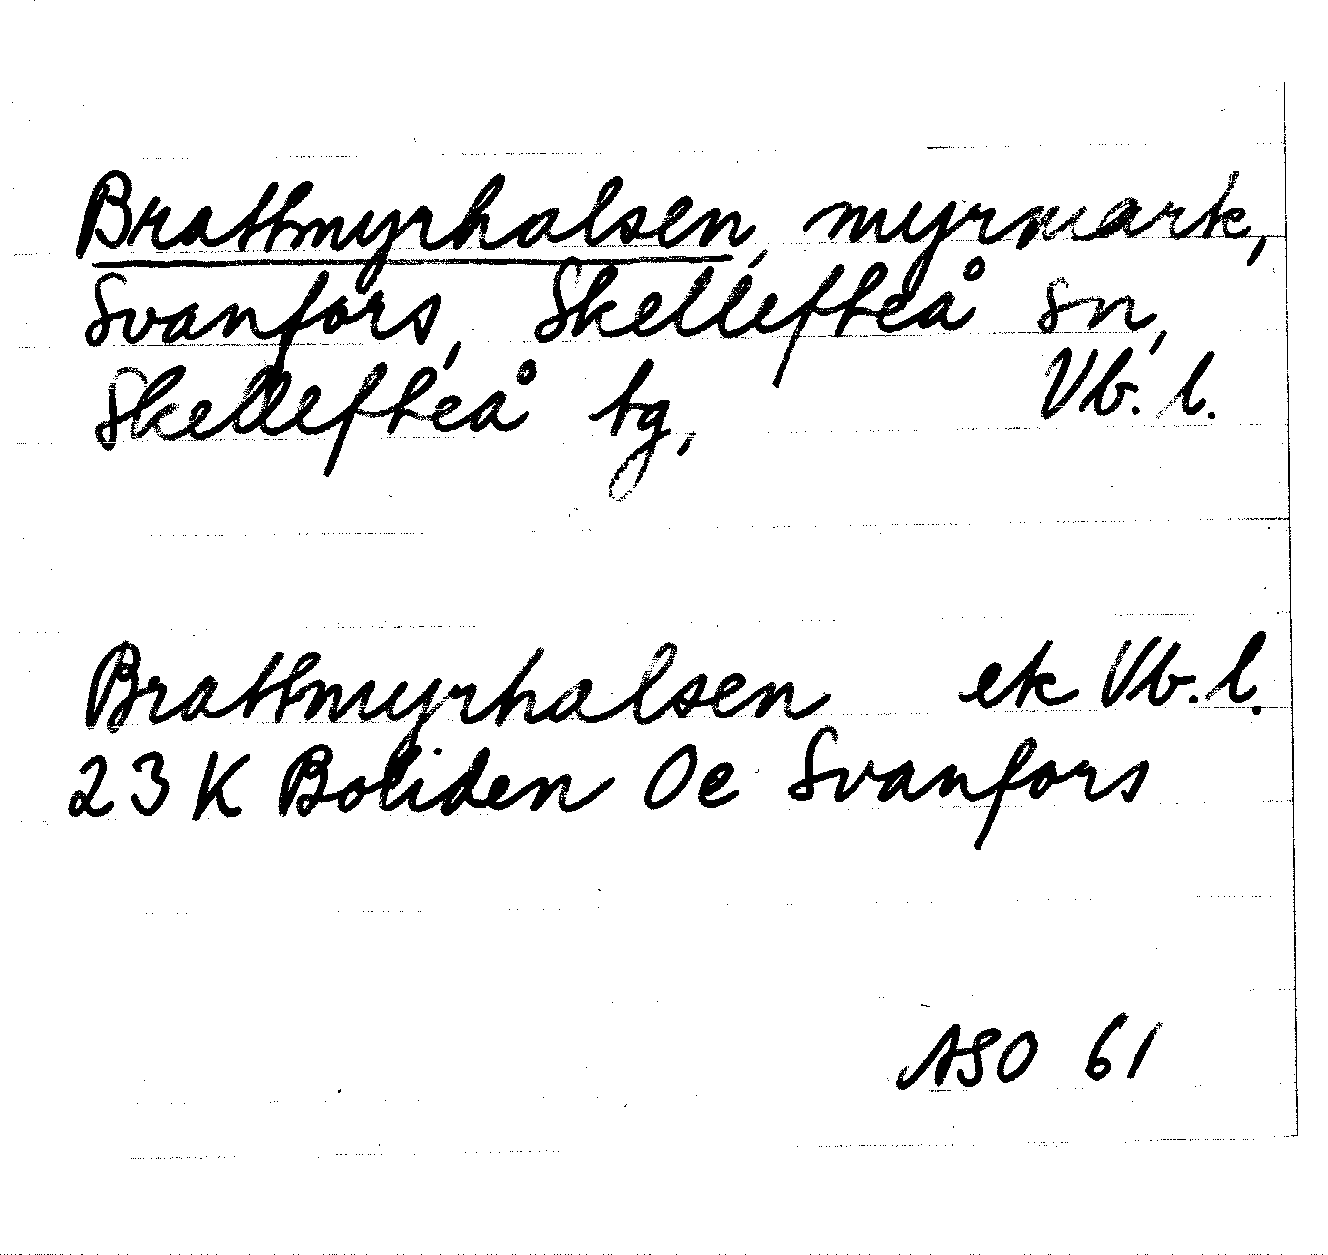 Brattmyrhalsen, myrmark,
Svanfors, Skellefteå sn,
Skellefteå tg, Vb. l.
Brattmyrhalsen ek Vb. l.
23 K Boliden 0e Svanfors
ASO 61